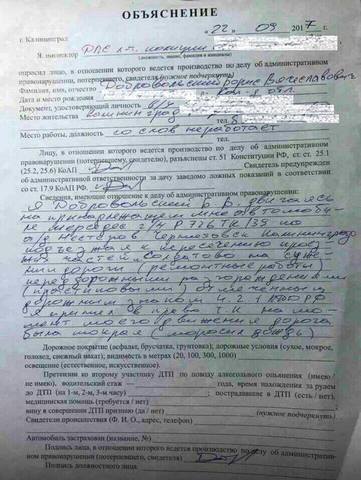 ОБЪЯСНЕНИЕ
г. Калининград «22» 09 2017 г.
Я, инспектор ДПС л-т полиции
(должность, звание, фамилия и инициалы)
опросил лицо, в отношении которого ведется производство по делу об административном
правонарушении, потерпевшего, свидетеля (нужное подчеркнуть)
Фамилия, имя, отчество Добровольский Борис Вячеславович
Дата и место рождения
Документ, удостоверяющий личность в/у
Место жительства Калининград
тел.
Место работы, должность со слов неработает
тел.
Лицу, в отношении которого ведется производство по делу об административном
правонарушении (потерпевшему, свидетелю), разъяснены ст. 51 Конституции РФ, ст. ст. 25.1
(25.2, 25.6) КоАП Свидетель предупрежден
об административной ответственности за дачу заведомо ложных показаний в соответствии
со ст. 17.9 КоАП РФ.
Сведения, имеющие отношение к делу об административном правонарушении:
Я Добровольский Б.В. двигаясь
на принадлежащем мне автомоби-
ле мерседес г/н Р776ТК/39 по
а/д Нестеров Черняховск Калининград
подъезжая к пересечению проез
жих частей
дороги ремонтные работы
дорожным знаком 4.2.1 ПДД РФ
Я принял в право т.к на мо-
мент моего движения дорога
была мокрая (моросил дождь)
Дорожное покрытие (асфальт, брусчатка, грунтовка); дорожные условия (сухое, мокрое,
гололед, снежный накат); видимость в метрах (20, 100, 300, 1000)
освещение (естественное, искусственное).
Претензии ко второму участнику ДТП по поводу алкогольного опьянения (имею /
не имею), водительский стаж года, время нахождения за рулем
до ДТП (на 1-м, 2-м, 3-м часу) пострадавшие в ДТП (есть / нет),
медицинская помощь (требуется / нет)
вину в совершении ДТП признаю (да / нет) (нужное подчеркнуть)
Свидетели происшествия (Ф. И. О., адрес, телефон)
Автомобиль застрахован (название, №)
Подпись лица, в отношении которого ведется производство по делу об административ-
ном правонарушении (потерпевшего, свидетеля)
Подпись должностного лица